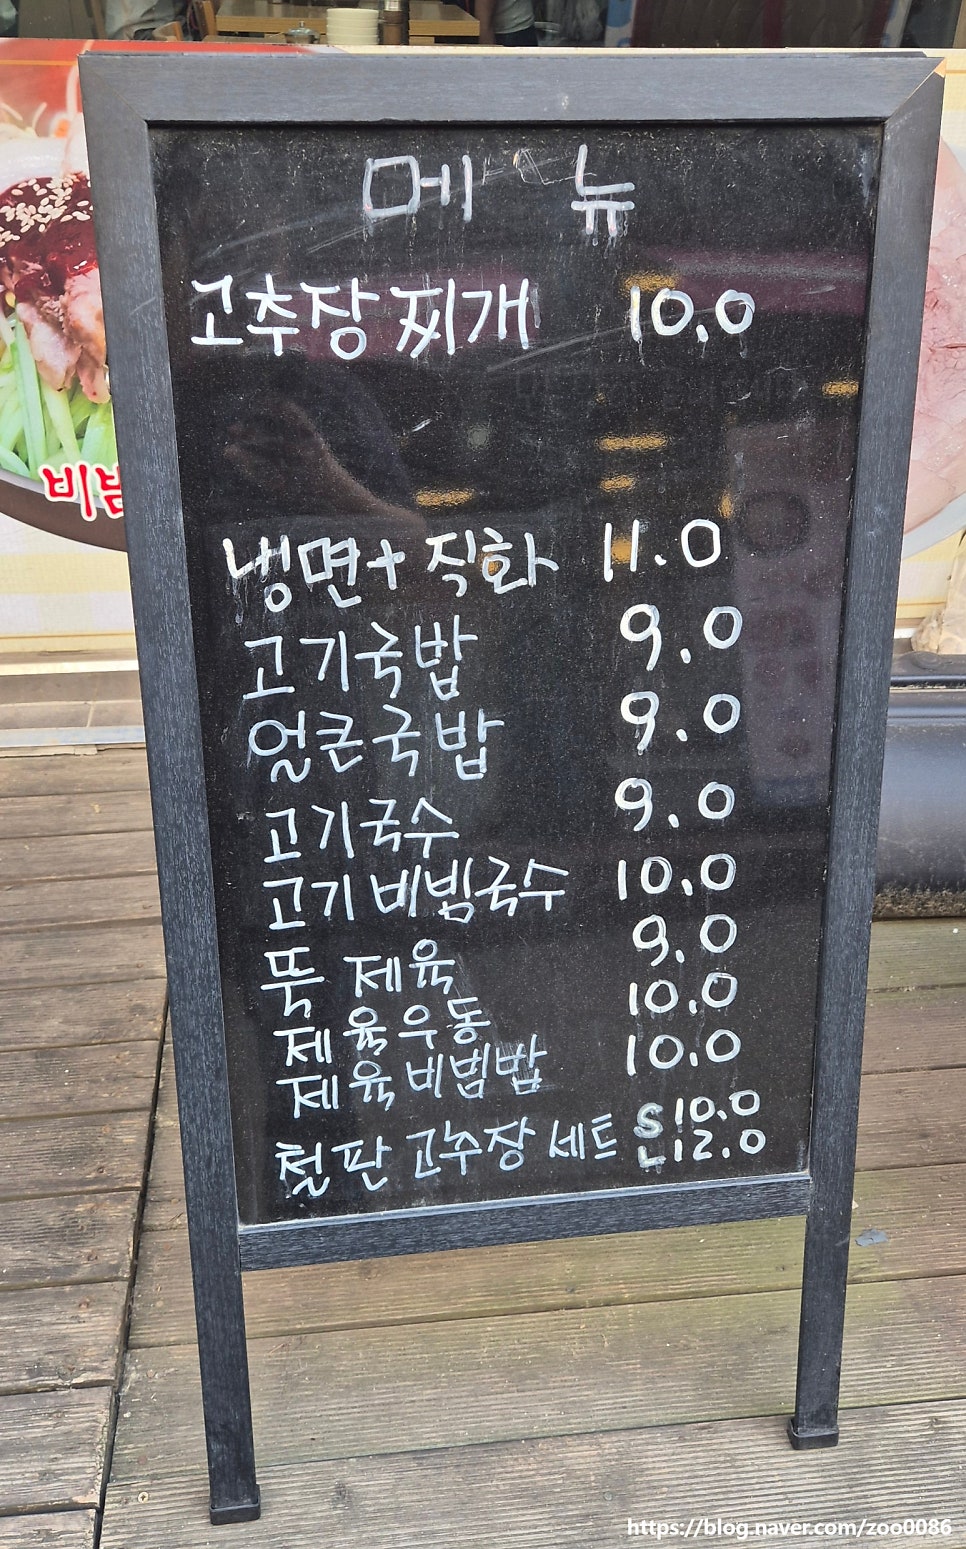 메뉴
고추장찌개 10.0
냉면+직화 11.0
고기국밥 9.0
얼큰국밥 9.0
고기국수 9.0
고기비빔국수 10.0
뚝 제육 9.0
제육우동 10.0
제육비빔밥 10.0
철판 고추장 세트 S 10.0
L 12.0
비빔
https://blog.naver.com/zoo0086